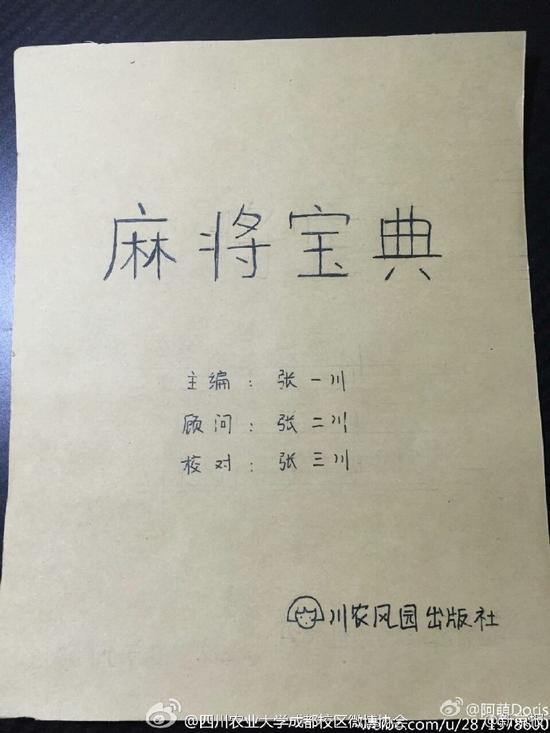 麻将宝典
主编：张一川
顾问：张二川
核对：张三川
川农风园出版社
@阿萌Doris
@四川农业大学成都校区微博协会
weibo.com/u/2871978600